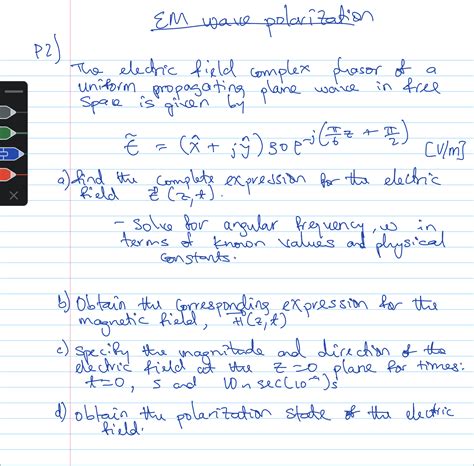 EM wave polarization
P2)
The electric field complex phasor of a
uniform propagating plane wave in free
space is given by
Ẽ = (x̂ + jŷ) 30 e^-j(π/6 z + π/2) [V/m]
a) find the complete expression for the electric
field E(z,t).
- Solve for angular frequency, ω in
terms of known values and physical
constants.
b) Obtain the corresponding expression for the
magnetic field, H(z,t)
c) Specify the magnitude and direction of the
electric field at the z=0 plane for times:
t=0, 5 and 10 nsec(10⁻⁹)s
d) obtain the polarization state of the electric
field.